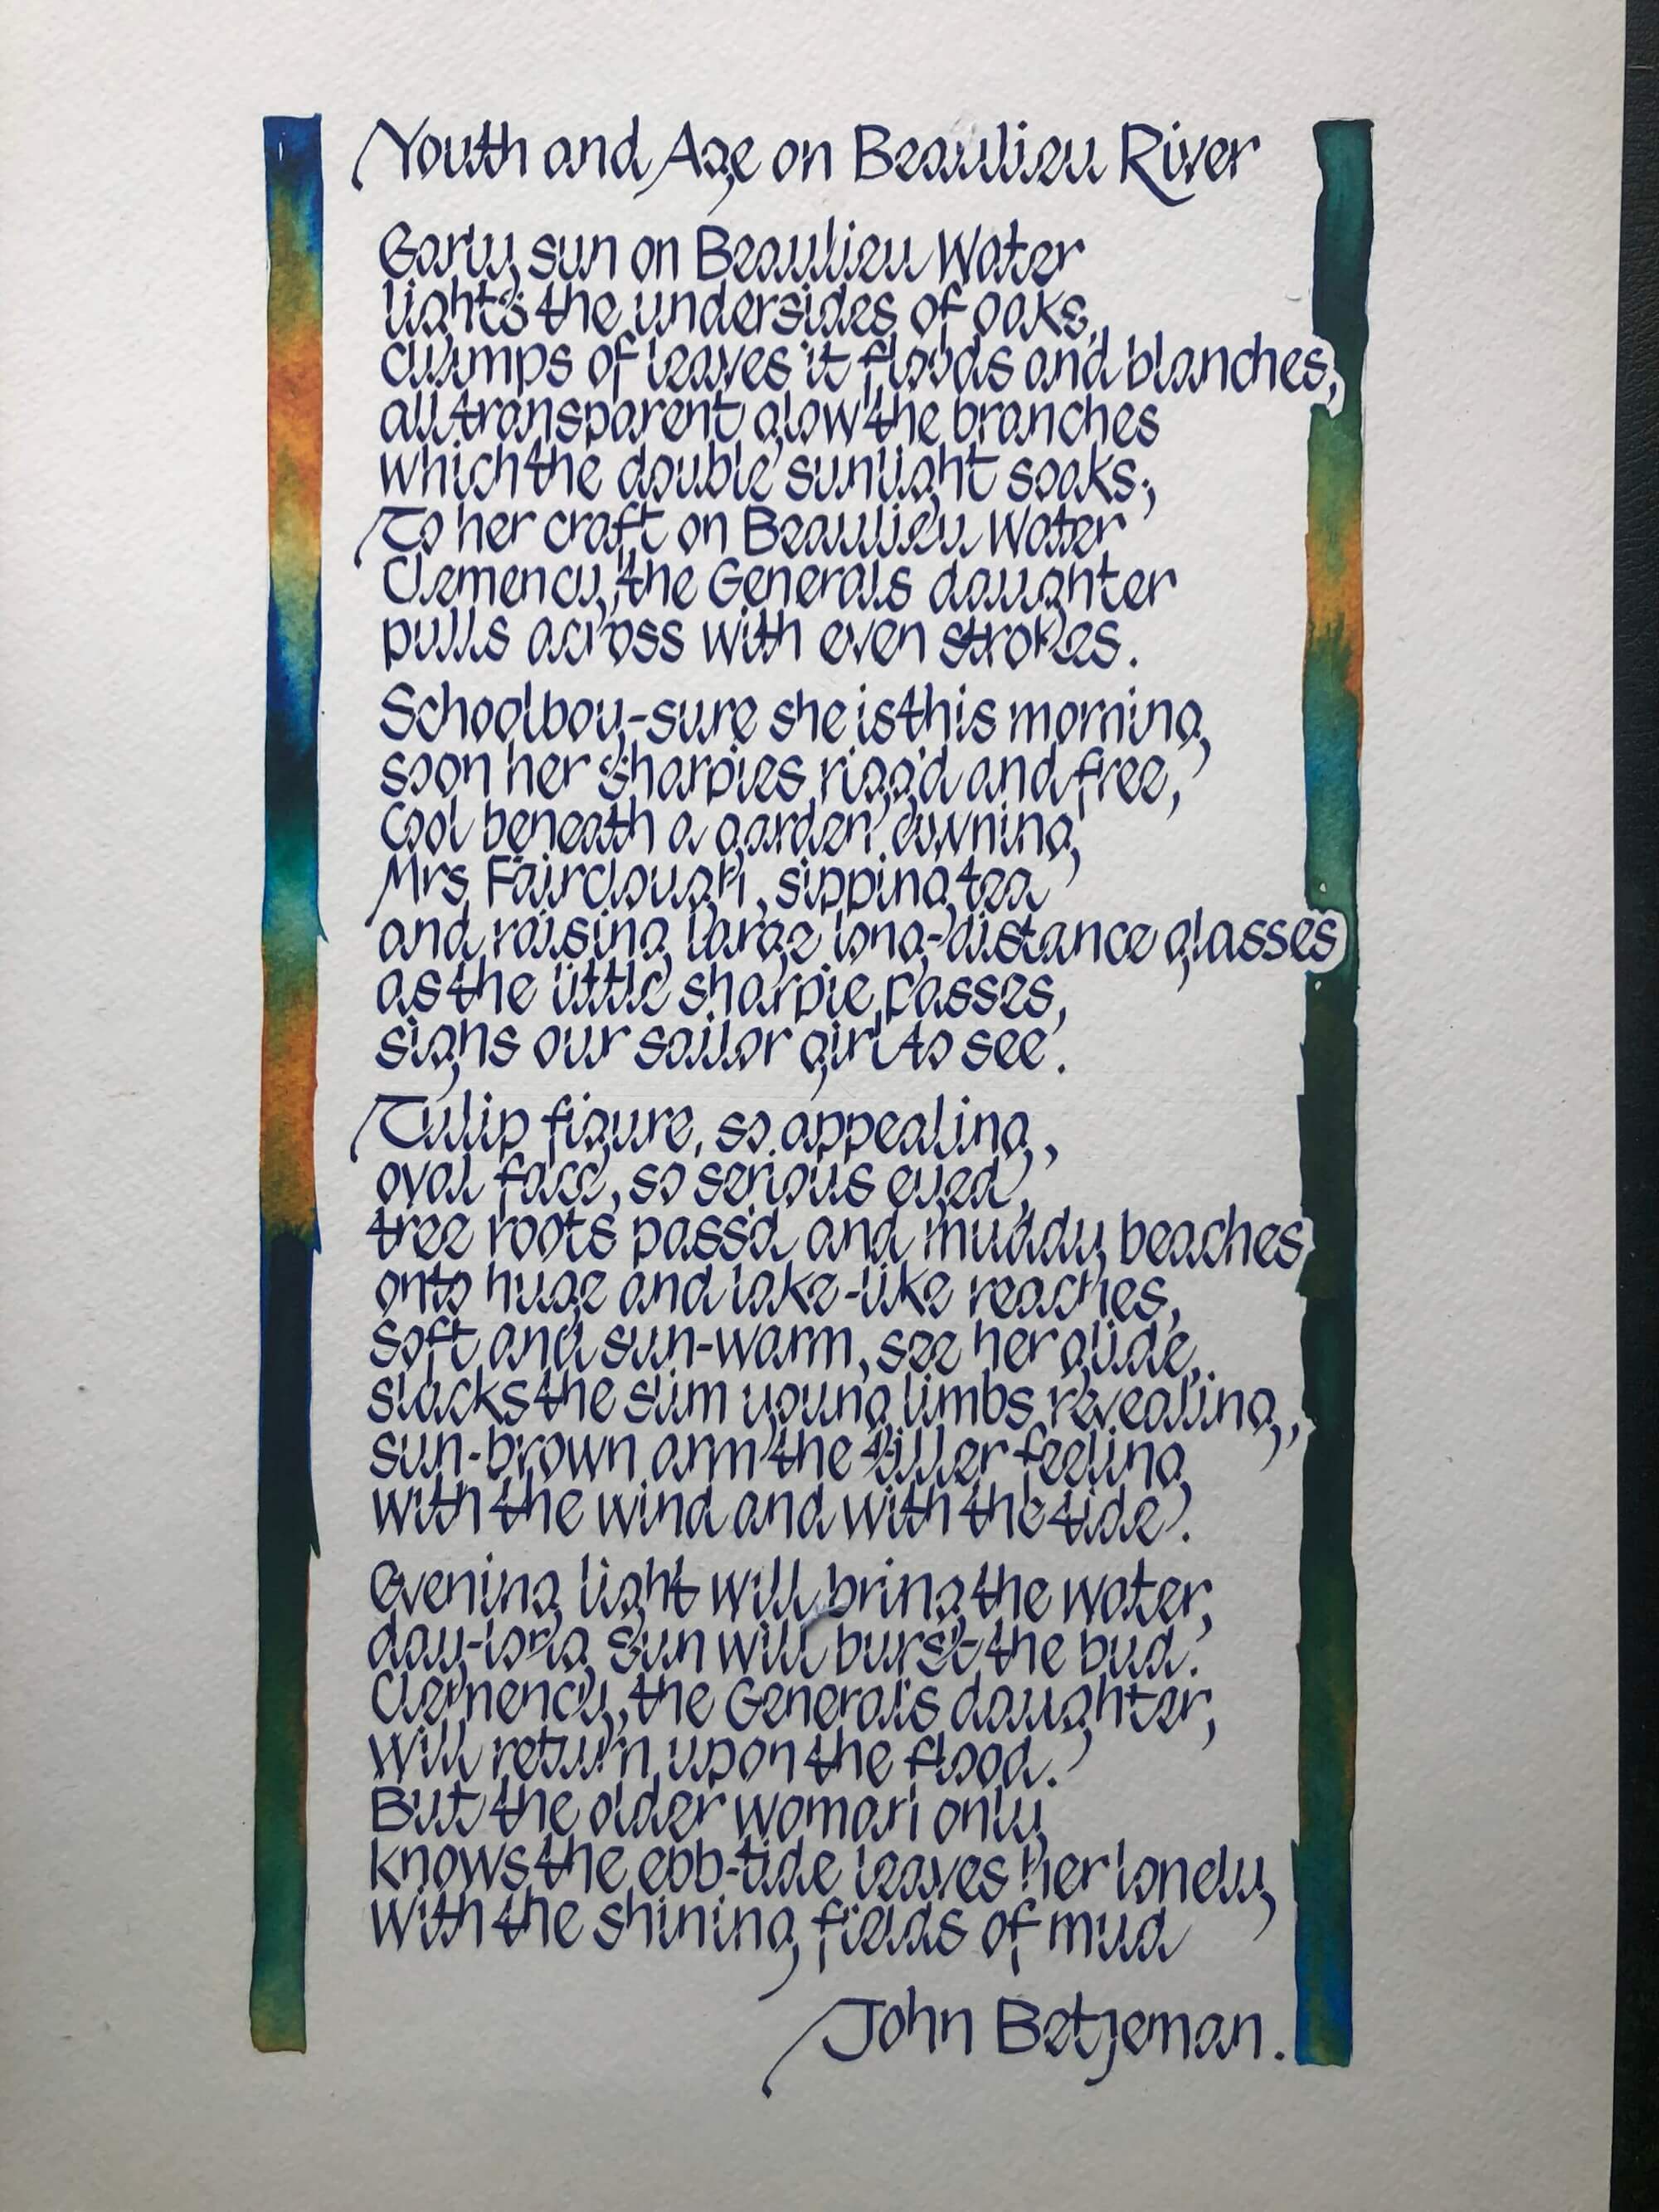 Youth and Age on Beaulieu River
Early sun on Beaulieu Water
lights the undersides of oaks,
clumps of leaves it floods and blanches,
all transparent glow the branches
which the double sunlight soaks;
To her craft on Beaulieu Water
Clemency, the Generals daughter
pulls across with even strokes.
Schoolboy-sure she is this morning,
soon her sharpies rigg'd and free,
Cool beneath a garden awning,
Mrs Fairclough, sipping tea
and raising large long-distance glasses
as the little sharpie passes,
sighs our sailor girl to see.
Tulip figure, so appealing,
oval face, so serious eyed,
tree roots pass'd and muddy beaches
onto huge and lake-like reaches,
soft and sun-warm, see her glide,
slacks the slim young limbs revealing,
sun-brown arm the tiller feeling,
with the wind and with the tide.
Evening light will bring the water,
day-long sun will burst the bud.
Clemency, the General's daughter,
will return upon the flood.
But the older woman only
knows the ebb-tide leaves her lonely
with the shining fields of mud
John Betjeman.